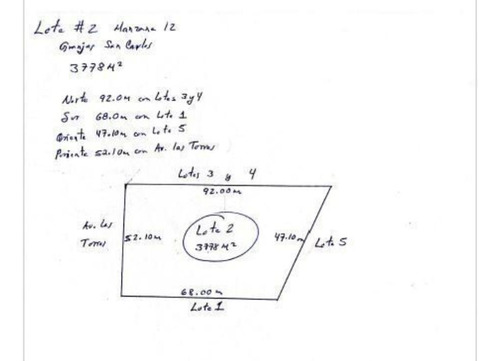 Lote #2 Manzana 12
Granjas San Carlos
3778 M²
Norte 92.0m con Lotes 3 y 4
Sur 68.0m con Lote 1
Oriente 47.10m con Lote 5
Poniente 52.10m con Av. las Torres
Lotes 3 y 4
92.00m
Av. las
Torres
52.10m
Lote 2
3778 M²
47.10m
Lote 5
68.00m
Lote 1